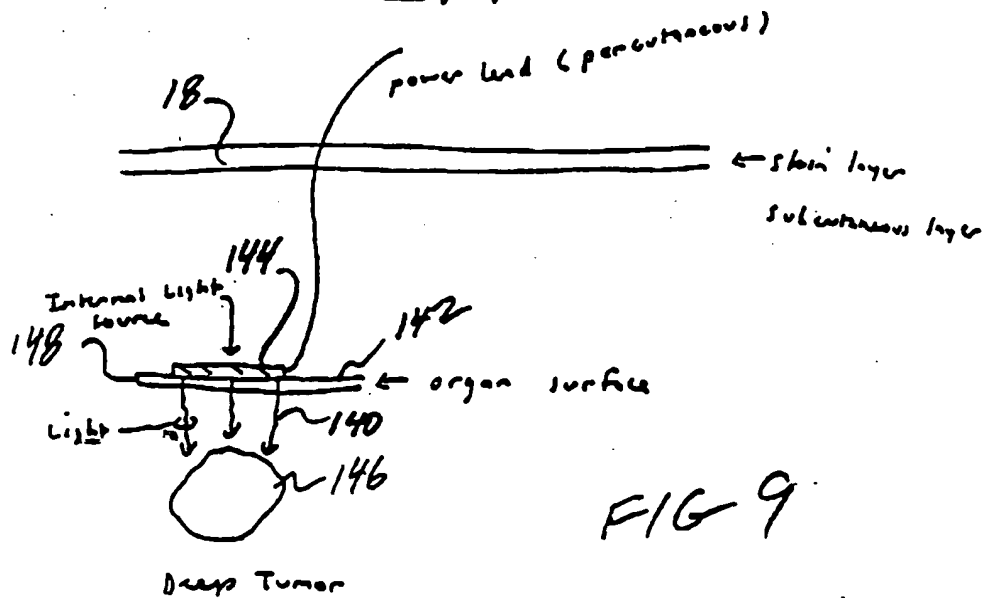 power lead (percutaneous)
18
← skin layer
subcutaneous layer
144
Internal Light
source
148
142
← organ surface
Light
140
146
FIG 9
Deep Tumor